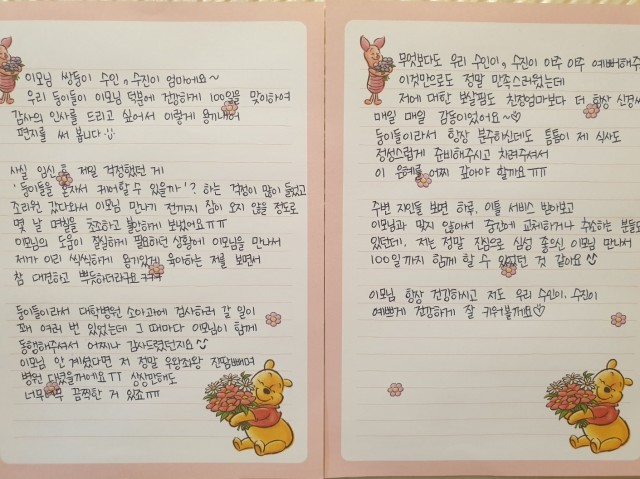 이모님 쌍둥이 수인,, 수진이 엄마에요~
우리 둥이들이 이모님 덕분에 건강하게 100일을 맞이하여
감사의 인사를 드리고 싶어서 이렇게 용기내어
편지를 써 봅니다
사실 임신 중 제일 걱정했던 게
'둥이들을 혼자서 케어할 수 있을까'? 하는 걱정이 많이 들었고
조리원 갔다와서 이모님 만나기 전까지 잠이 오지 않을 정도로
몇 날 며칠을 초조하고 불안하게 보냈어요ㅠㅠ
이모님의 도움이 절실하게 필요하던 상황에 이모님을 만나서
제가 이리 씩씩하게 용기있게 육아하는 저를 보면서
참 대견하고 뿌듯하더라구요ㅋㅋㅋ
둥이들이라서 대학병원 소아과에 검사하러 갈 일이
꽤 여러 번 있었는데 그 때마다 이모님이 함께
동행해주셔서 어찌나 감사드렸던지요
이모님 안 계셨다면 저 정말 우왕좌왕 진땀빼며
병원 다녔을꺼에요ㅠㅠ 상상만해도
너무너무 끔찍한 거 있죠ㅠㅠ
무엇보다도 우리 수인이,, 수진이 아주 아주 예뻐해주
이것만으로도 정말 만족스러웠는데
저에 대한 보살핌도 친정엄마보다 더 항상 신경써
매일 매일 감동이었어요~♡
둥이들이라서 항상 분주하신데도 틈틈이 제 식사도
정성스럽게 준비해주시고 차려주셔서
이 은혜를 어찌 갚아야 할까요ㅠㅠ
주변 지인들 보면 하루, 이틀 서비스 받아보고
이모님과 맞지 않아서 중간에 교체하거나 취소하는 분들도
있던데, 저는 정말 진심으로 심성 좋으신 이모님 만나서
100일까지 함께 할 수 있었던 것 같아요
이모님 항상 건강하시고 저도 우리 수인이, 수진이
예쁘게 건강하게 잘 키워볼게요♡